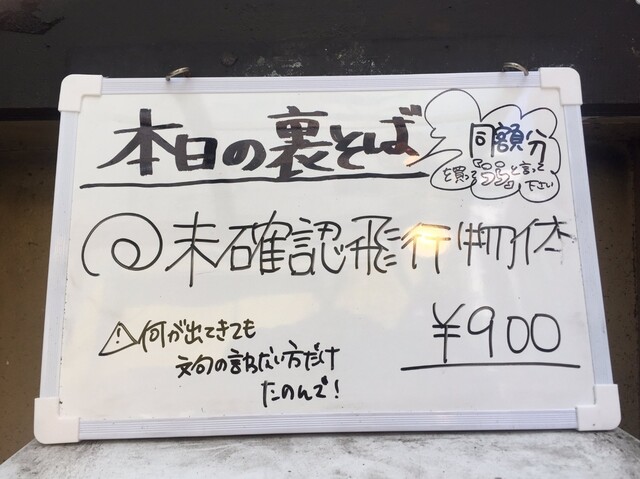 本日の裏そば
同額分
を買って『うら』と言って下さい
未確認飛行物体
¥900
何が出てきても
文句の言わない方だけ
たのんで！